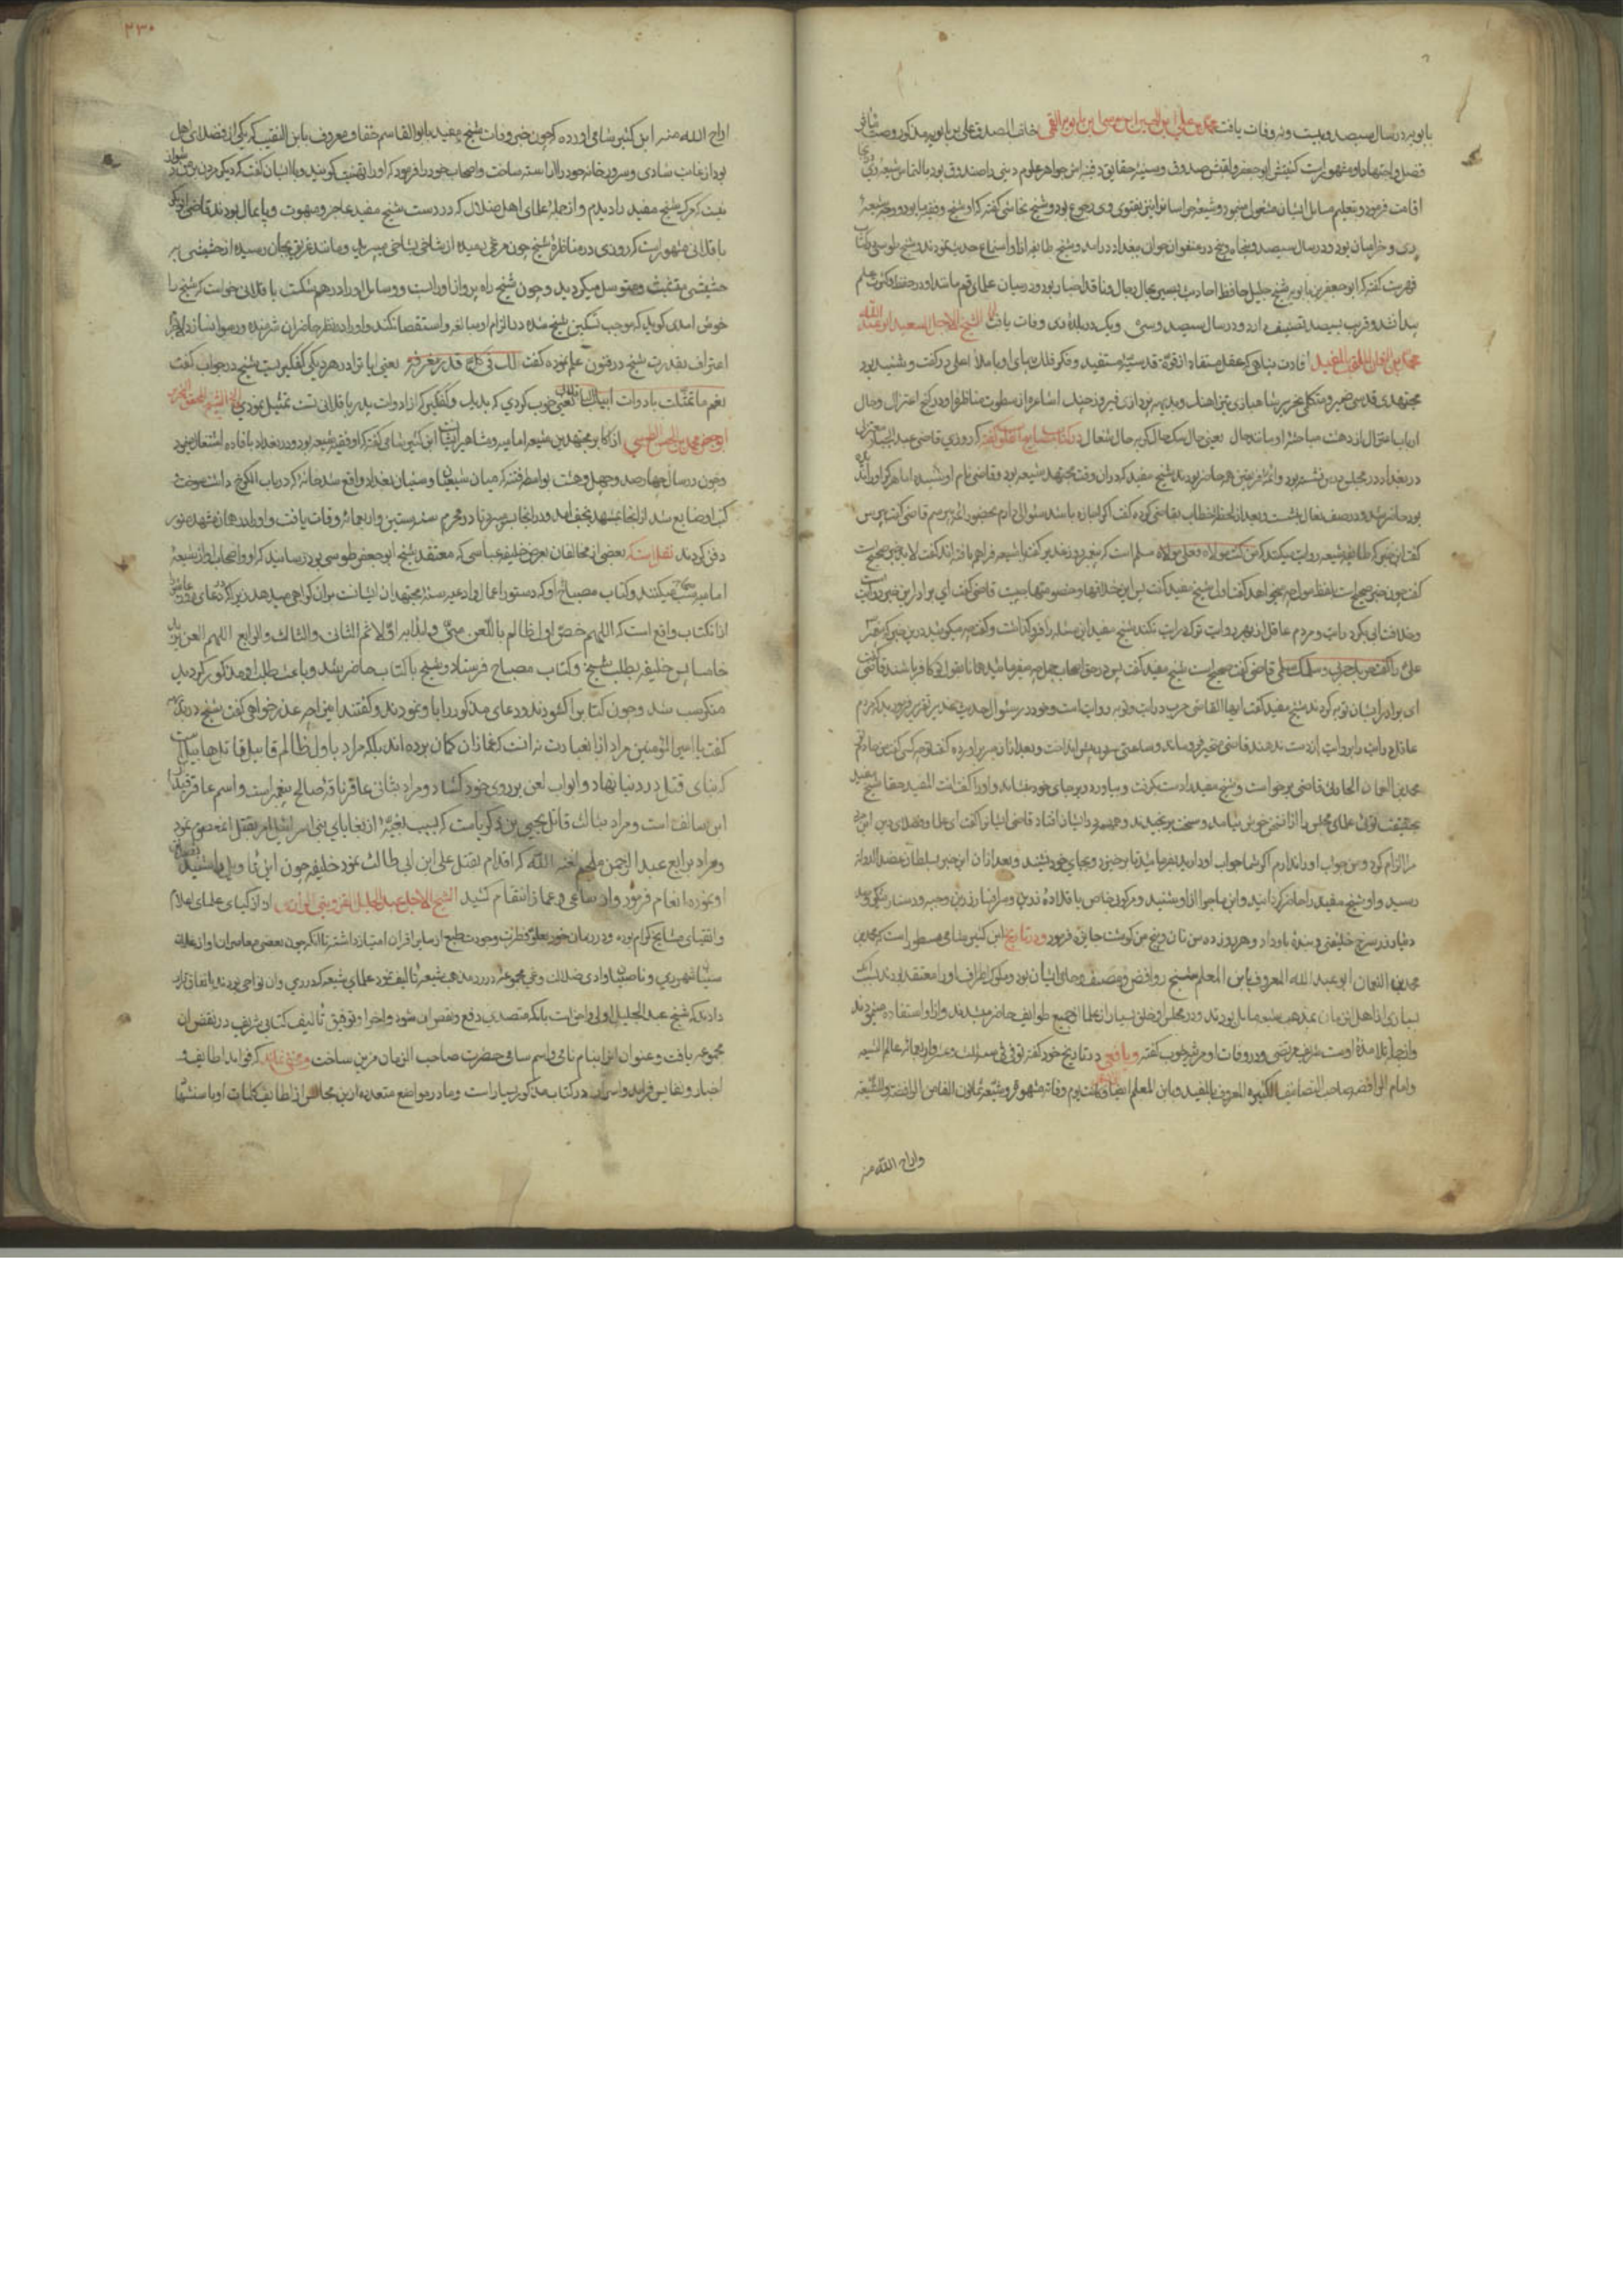 بابویه در سال سیصد و بیست و نه وفات یافت محمد بن علی ابن الحسین ابن موسی ابن بابویه القمی خلف الصدق علی بن بابویه مذکور و صیت
فضل و اجتهاد او مشهور است کنیتش ابو جعفر و لقبش صدوق و سینه حقایق دفینه اش جواهر علوم دینی را صندوق بود بالتماس شیعه ری
اقامت فرمود و بتعلیم مسایل ایشان مشغول و شیعه خراسان را نیز بفتوی وی رجوع بود و شیخ نجاشی گفته که او شیخ و فقیه ما بود و وجه شیعه
ری و خراسان بود و در سال سیصد و پنجاه و پنج در عنفوان جوانی ببغداد درآمد و شیوخ طایفه از او استماع حدیث نمودند و شیخ طوسی در کتاب
فهرست گفته که ابو جعفر بن بابویه شیخ جلیل حافظ احادیث بصیر بحال رجال و ناقد اخبار بود و در میان علمای قم مانند او در حفظ و کثرت علم
پیدا نشد و قریب بسیصد تصنیف دارد و در سال سیصد و سی و یک در بلده ری وفات یافت الشیخ الاجل السعید ابو عبد الله
محمد بن النعمان الملقب بالمفید افادت پناهی که عقل مستفاد از قوه قدسیه مستفید و فکر فلک پیمای او با ملأ اعلی در گفت و شنید بود
مجتهدی قدسی ضمیر و متکلمی نحریر
ارباب اعتزال از دهشت مباحثه او مانند حال یعنی حال سکمالگونه حال شغال در کتاب مصابیح القلوب گفته که روزی قاضی عبد الجبار معتزلی
در بغداد در مجلس درس نشسته بود و ائمه فریقین حاضر بودند شیخ مفید که در آن وقت مجتهد شیعه بود و قاضی نام او شنیده اما هرگز او را ندیده
بود حاضر شد و در صف نعال بنشست و بعد از لحظه ای خطاب بقاضی کرده گفت اگر اجازه باشد سئوالی دارم بحضور ائمه بپرسم قاضی گفت بپرس
گفت این خبر که طایفه شیعه روایت میکنند که من کنت مولاه فعلی مولاه مسلم است که پیغمبر روز غدیر گفت یا شیعه فراهم بافته اند گفت لا بل خبر صحیح است
گفت چون خبر صحیح است لفظ مولی چه میخواهد گفت اولی شیخ مفید گفت پس این خلافها و خصومتها چیست قاضی گفت ای برادر این خبر روایت است
و خلافت ابی بکر درایت و مردم عاقل از بهر روایت ترک درایت نکنند شیخ مفید این مسئله را فرو گذاشت و گفت چه میگویید در این خبر که پیغمبر
علی را گفت حربک حربی و سلمک سلمی قاضی گفت صحیح است شیخ مفید گفت پس در حق اصحاب جمل چه میفرمایید
ای برادر ایشان توبه کردند شیخ مفید گفت ایها القاضی حرب درایت است و توبه روایت است و خود در سئوال حدیث غدیر تقریر فرمودید که مردم
عاقل درایت را بروایت از دست ندهند قاضی متحیر فرو ماند و ساعتی سر در پیش انداخت و بعد از آن سر برآورده گفت تو چه کسی گفت من خادم تو
محمد بن النعمان الحارثی قاضی برخاست و شیخ مفید را دست بگرفت و بیاورد و بر جای خود بنشاند و او را گفت انت المفید حقا
مفید بحقیقت تویی علمای مجلس را از این سخن خوش نیامد و سخت برنجیدند و همهمه در ایشان افتاد قاضی ایشان را گفت ای علما و فضلای دین این مرد
مرا الزام کرد و من جواب او ندارم اگر شما جواب او دارید بفرمایید تا برخیزد و بجای خود نشیند و بعد از آن این خبر بسلطان عضد الدوله
رسید و او شیخ مفید را حاضر گردانید و این ماجرا از او بشنید و مرکوبی خاص با قلاده زرین و سرافسار زرین و جبه و دستار
دینار زر سرخ خلیفتی و بنده باو داد و هر روز ده من نان و پنج من گوشت جایزه فرمود و در تاریخ ابن کثیر شامی مسطور است که محمد بن
محمد بن النعمان ابو عبد الله المعروف بابن المعلم شیخ روافض و مصنف و حامی ایشان بود و ملوک اطراف او را معتقد بودند
بسیاری از اهل این زمان بمذهب شیعه مایل بودند و در مجلس او خلق بسیار از علما از جمیع طوایف حاضر میشدند و از او استفاده مینمودند
و از جمله تلامذه اوست شریف مرتضی و در وفات او مرثیه خوب گفته و یافعی در تاریخ خود گفته توفی فی سنه ثلث و عشر و اربعمائه عالم الشیعه
و امام الرافضه صاحب التصانیف الکثیره المعروف بالمفید و بابن المعلم ایضا و کانت یوم وفاته مشهوده و شیعه ثمانون الفا من الرافضه و الشیعه
واراح الله منه
۲۳۰
اراح الله منه ابن کثیر شامی آورده که چون خبر وفات شیخ مفید بابو القاسم خفاف معروف بابن النقیب که یکی از فضلای اهل
بود از غایت شادی و سرور خانه خود را آراسته ساخت و اصحاب خود را فرمود که او را تهنیت گویند و با ایشان گفت که دیگر مردن بر من دشوار
نیست که مرگ شیخ مفید را دیدم و از جمله علمای اهل ضلال که در دست شیخ مفید عاجز و مبهوت و پایمال بودند قاضی ابو بکر
باقلانی مشهور است که روزی در مناظره شیخ چون مرغی رمیده از شاخی بشاخی میپرید و مانند غریق بجان رسیده از حشیشی به
حشیشی متشبث و متوسل میگردید و چون شیخ راه پرواز او را بست و وسایل او را در هم شکست باقلانی خواست که شیخ را
خوش آمدی گوید که موجب تسکین شیخ شده در الزام او مبالغه و استقصا نکند و او را در نظر حاضران شرمنده و رسوا نسازد
اعتراف بقدرت شیخ در فنون علم نموده گفت الک فی کل قدر مغرفه یعنی آیا ترا در هر دیگی کفگیریست شیخ در جواب گفت
نعم ما تمثلت بادوات ابیک الباقلانی یعنی خوب کردی که بدیگ و کفگیر که از ادوات پدر باقلانی تست تمثیل نمودی الشیخ المحقق
ابو جعفر محمد بن الحسن الطوسی از اکابر مجتهدین شیعه امامیه و مشاهیر ایشان است ابن کثیر شامی گفته که او فقیه شیعه بود و در بغداد بافاده اشتغال مینمود
و چون در سال چهار صد و چهل و هشت بواسطه فتنه که میان شیعیان و سنیان بغداد واقع شد خانه که در باب الکرخ داشت سوخت
کتب او ضایع شد از آنجا بمشهد نجف آمد و در آنجا بسر میبرد تا در محرم سنه ستین و اربعمائه وفات یافت و او را در همان مشهد منور
دفن کردند نقلست که بعضی از مخالفان بعرض خلیفه عباسی که معتقد شیخ ابو جعفر طوسی بود رسانیدند که او و اصحاب او از شیعه
امامیه سب صحابه میکنند و کتاب مصباح او که دستور اعمال و ادعیه سنه مجتهدان ایشانست بر آن گواهی میدهد زیرا که در دعای روز عاشورا
از آن کتاب واقع است که اللهم خص اول ظالم باللعن منی و ابدا به اولا ثم الثانی و الثالث و الرابع اللهم العن یزید
خامسا پس خلیفه بطلب شیخ و کتاب مصباح فرستاد و شیخ با کتاب حاضر شد و باعث طلب او مذکور گردید
منکر سب شد و چون کتاب را گشودند و دعای مذکور را باو نمودند و گفتند این را چه عذر خواهی گفت شیخ در بدیهه
گفت یا امیر المؤمنین مراد از آن عبارت نه آنست که غمازان گمان برده اند بلکه مراد باول ظالم قابیل قاتل هابیل است
که بنای قتل در دنیا نهاد و ابواب لعن بر روی خود گشاد و مراد بثانی عاقر ناقه صالح پیغمبر است و اسم عاقر قیدار
ابن سالف است و مراد بثالث قاتل یحیی بن زکریاست که بسبب بغیه از بغایای بنی اسرائیل امر بقتل آن معصوم نمود
و مراد برابع عبد الرحمن ملجم لعنه الله که اقدام بقتل علی ابن ابی طالب نمود خلیفه چون این تاویل را شنید تصدیق
او نموده انعام فرمود و از ساعی و غماز انتقام کشید الشیخ الاجل عبد الجلیل القزوینی الرازی از اذکیای علمای اعلام
و اتقیای مشایخ کرام بوده و در زمان خود بعلو فطرت و جودت طبع از سایر اقران امتیاز داشته تا آنکه چون بعضی معاصران او از غلاة
سنیان شهر ری و ناصبیان وادی ضلالت و غی مجموعه در رد مذهب شیعه تالیف نمود علمای شیعه که در ری و آن نواحی بودند باتفاق قرار
دادند که شیخ عبد الجلیل اولی و احق است بآنکه متصدی دفع و نقض آن شود و آخر او توفیق تالیف کتابی شریف در نقض آن
مجموعه یافت و عنوان آن را بنام نامی و اسم سامی حضرت صاحب الزمان مزین ساخت و مخفی نماند که فواید لطایف و
اخبار و نفایس فراید و اسرار در کتاب مذکور بسیار است و ما در مواضع متعدده از این مجالس از لطایف کلمات او باستشهاد